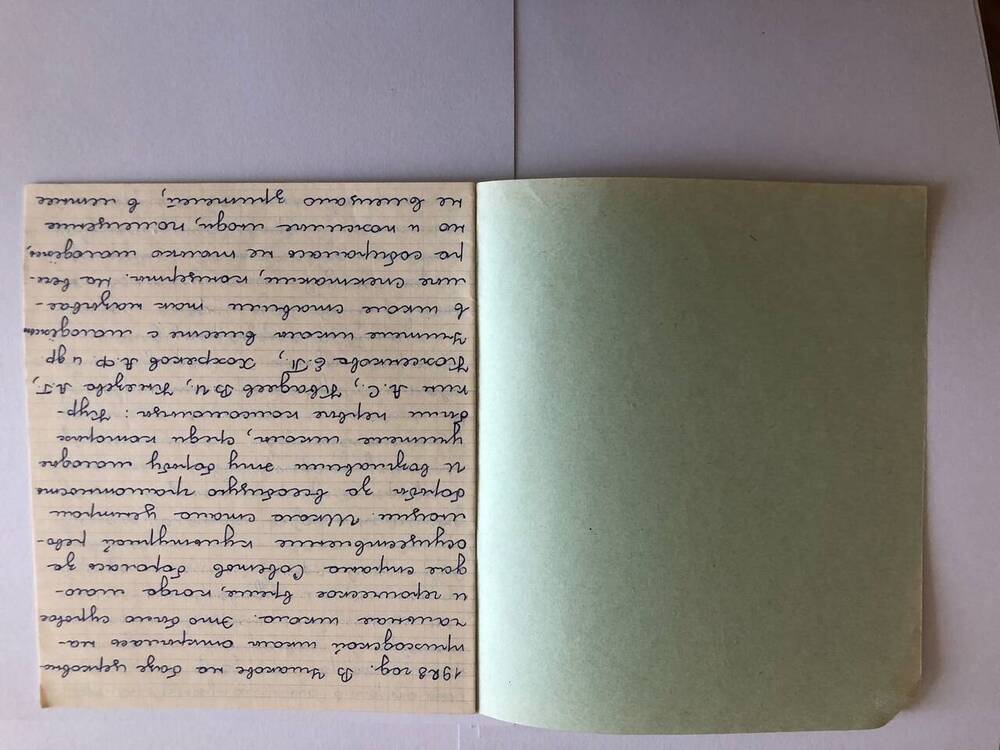 1928 год. В Ушакове на базе церковно-
приходской школы открылась на-
чальная школа. Это было суровое
и героическое время, когда моло-
дая страна Советов боролась за
осуществление культурной рево-
люции. Школа стала центром
борьбы за всеобщую грамотность
И возглавили эту борьбу молодые
учителя школы, среди которых
были первые комсомольцы: Кур-
кин А.С., Квадяев В.И, Князева А.Г,
Кожевникова Е.П., Хохряков А.Ф и др
Учителя школы вместе с молодёжью
в школе ставили так называе-
мые спектакли, концерты. На вече-
ра собиралась не только молодёжь,
но и пожилые люди, помещение
не вмещало зрителей, в летнее